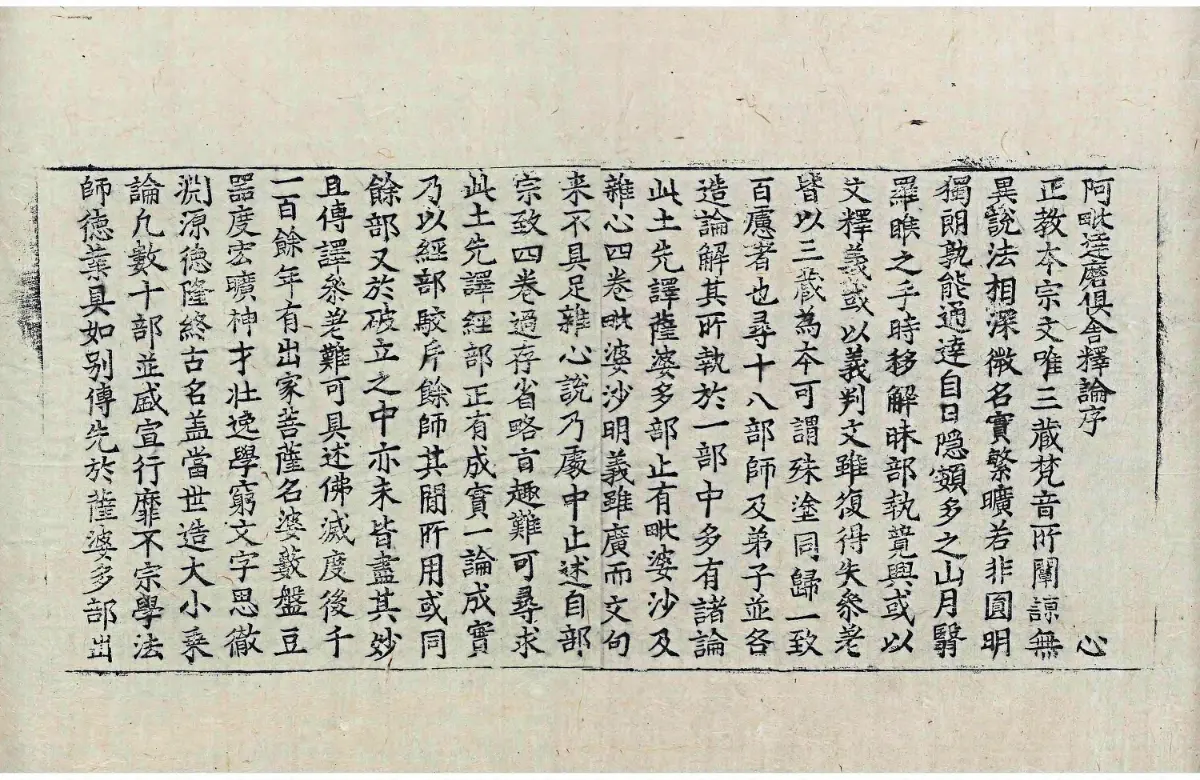 阿毗達磨俱舍釋論序 心
正教本宗文唯三藏梵音所闡諒無
異說法相深微名實繁曠若非圓明
獨朗孰能通達自日隱頞多之山月翳
羅睺之手時移解昧部執競興或以
文釋義或以義判文雖復得失叅差
皆以三藏為本可謂殊塗同歸一致
百慮者也尋十八部師及弟子並各
造論解其所執於一部中多有諸論
此土先譯薩婆多部止有毗婆沙及
雜心四卷毗婆沙明義雖廣而文句
来不具足雜心說乃處中止述自部
宗致四卷過存省略旨趣難可尋求
此土先譯經部正有成實一論成實
乃以經部駮斥餘師其間所用或同
餘部又於破立之中亦未皆盡其妙
且傳譯叅差難可具述佛滅度後千
一百餘年有出家菩薩名婆藪盤豆
器度宏曠神才壯逸學窮文字思徹
渕源德隆終古名盖當世造大小乘
論凢數十部並盛宣行靡不宗學法
師德業具如别傳先於薩婆多部出